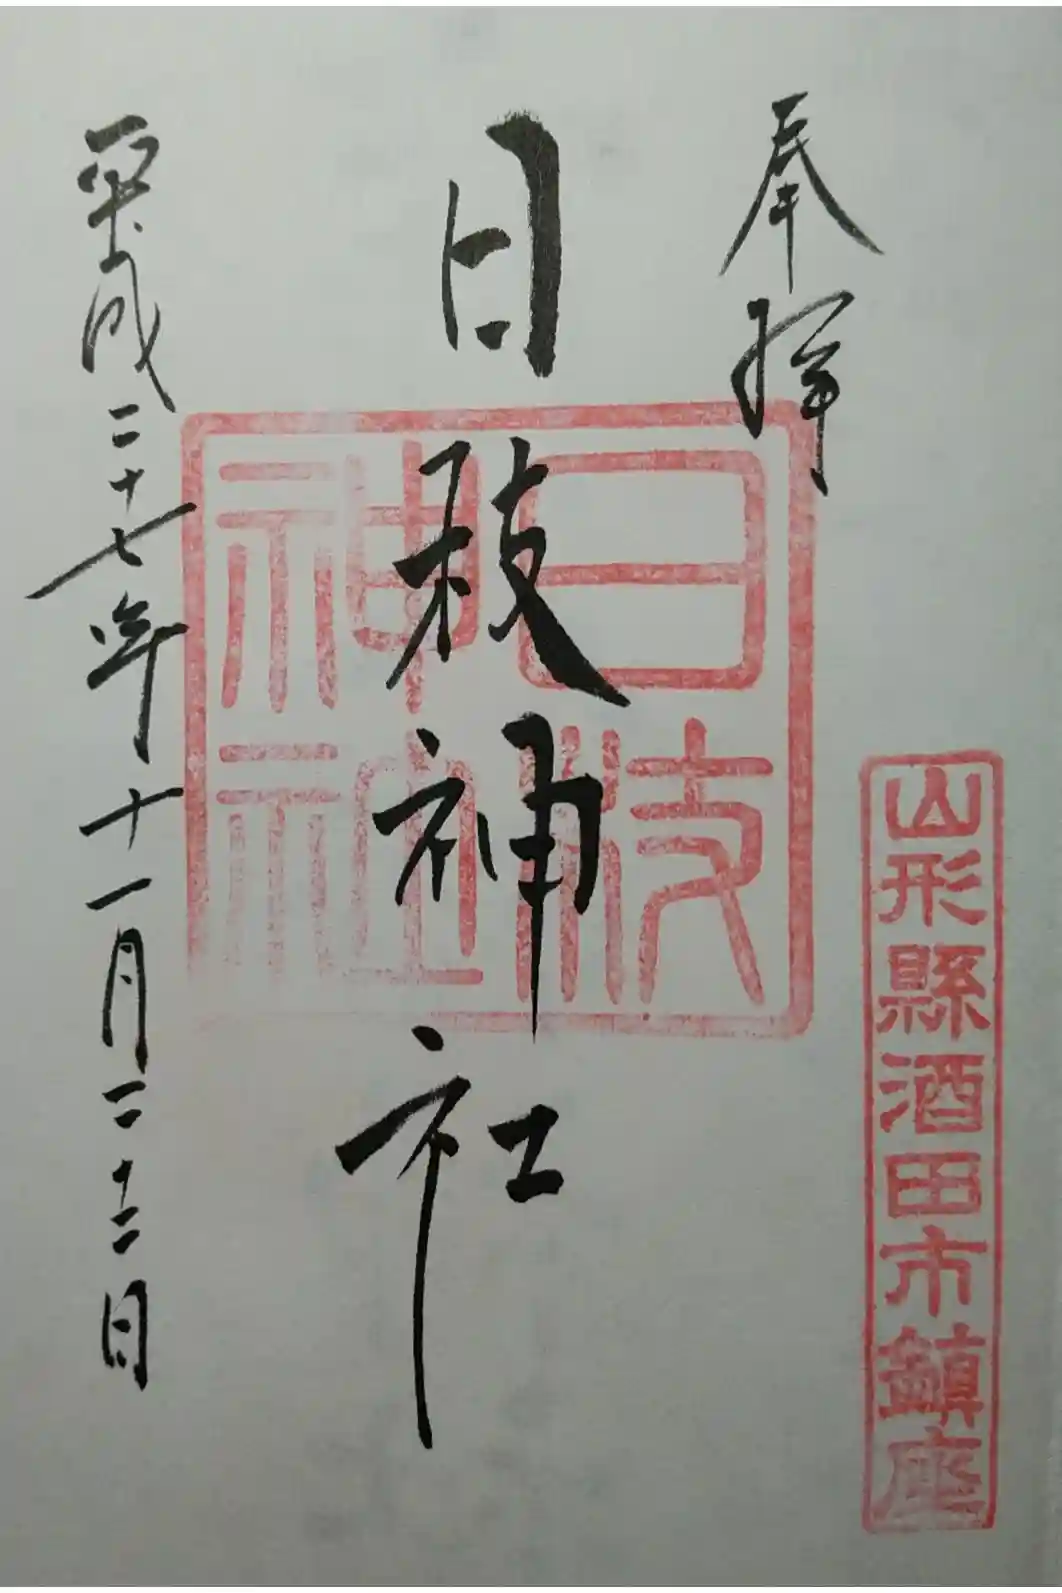 奉拝
山形縣酒田市鎮座
日枝神社
日枝
神社
平成二十七年十一月二十二日